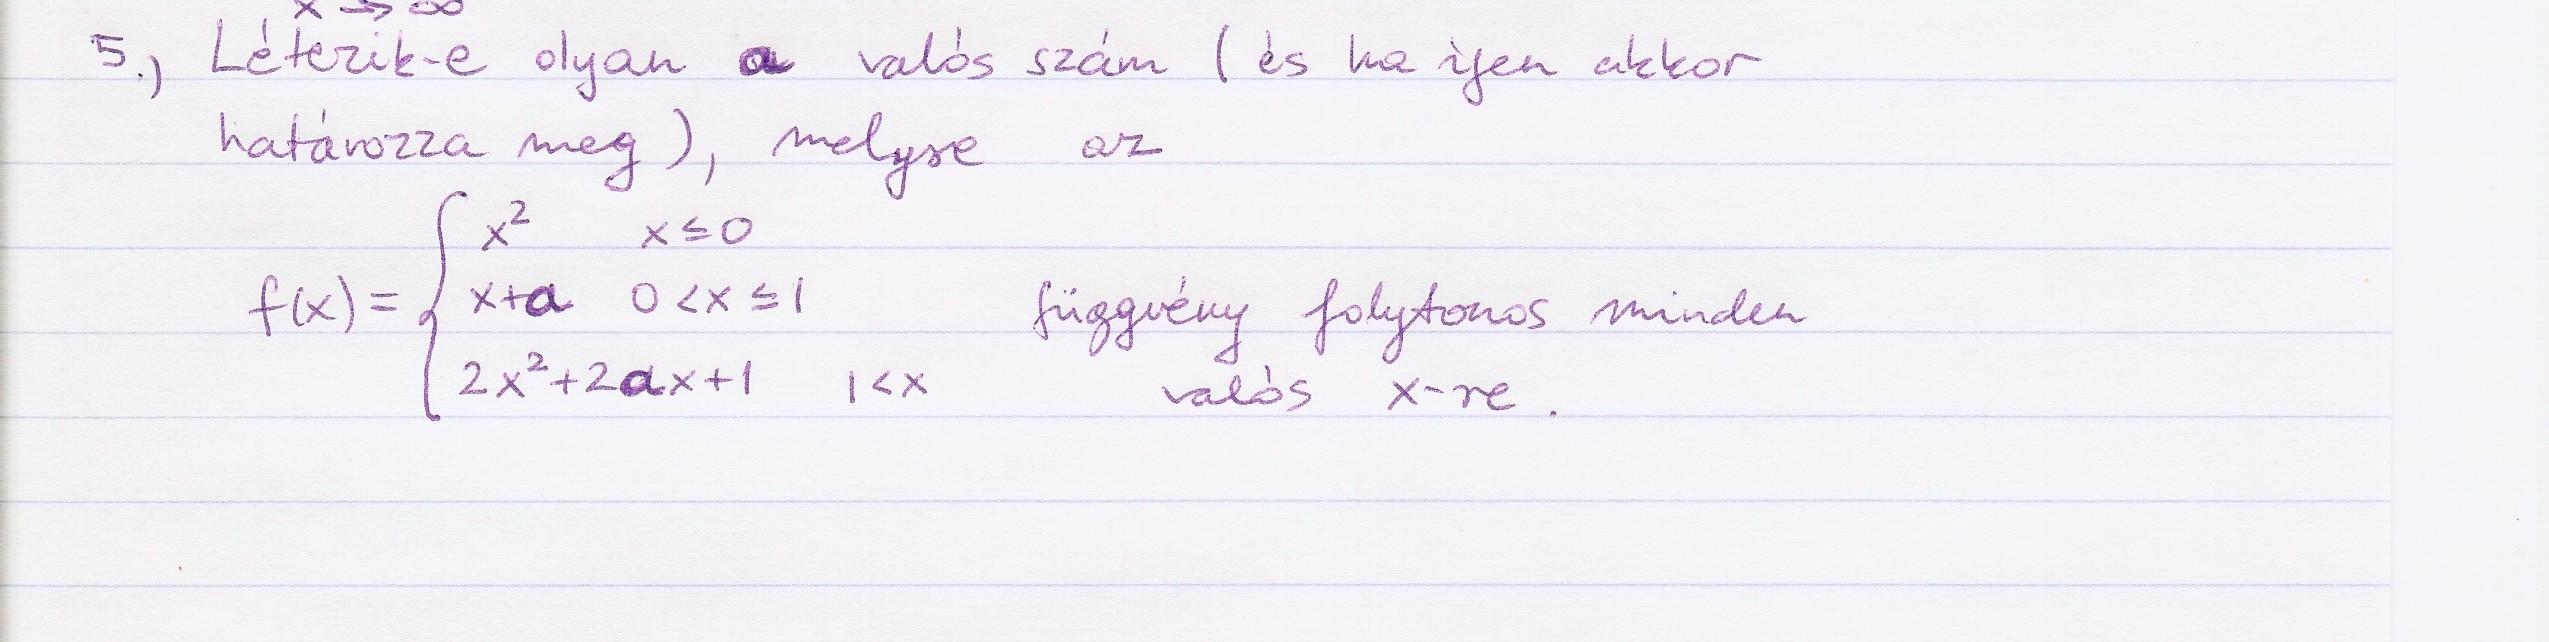 x → ∞
5.) Létezik-e olyan a valós szám (és ha igen akkor
határozza meg), melyre az
x² x ≤ 0
f(x) = { x+a 0 < x ≤ 1 függvény folytonos minden
2x²+2ax+1 1 < x valós x-re.